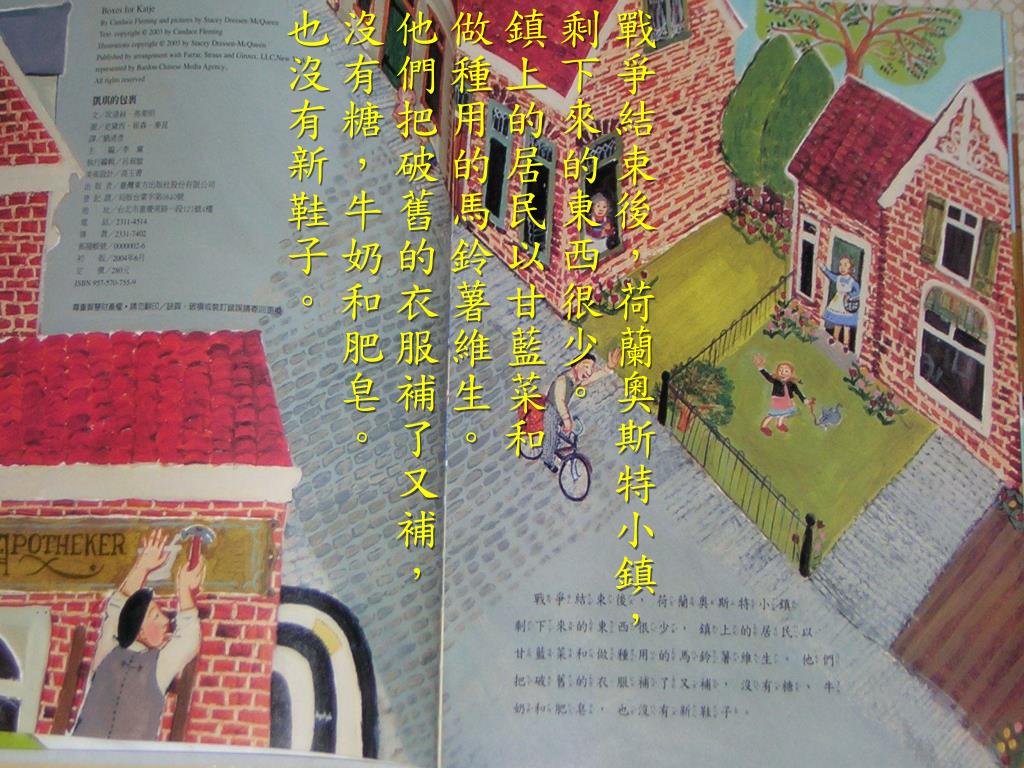 戰爭結束後，荷蘭奧斯特小鎮，
剩下來的東西很少。
鎮上的居民以甘藍菜和
做種用的馬鈴薯維生。
他們把破舊的衣服補了又補，
沒有糖，牛奶和肥皂。
也沒有新鞋子。
Boxes for Katje
By Candace Fleming and pictures by Stacey Dressen-McQueen
Text copyright © 2003 by Candace Fleming
Illustrations copyright © 2003 by Stacey Dressen-McQueen
Published by arrangement with Farrar, Straus and Giroux, LLC, New
represented by Bardon-Chinese Media Agency,
All rights reserved
凱琪的包裹
出版者／臺灣東方出版社股份有限公司
登記證／局版台業字第0840號
地址／台北市重慶南路一段121號4樓
電話／2311-4514
傳真／2331-7402
郵撥帳號／0000002-6
初版／2004年6月
定價／280元
ISBN 957-570-755-9
APOTHEKER
戰爭結束後，荷蘭奧斯特小鎮
剩下來的東西很少，鎮上的居民以
甘藍菜和做種用的馬鈴薯維生。他們
把破舊的衣服補了又補，沒有糖、牛
奶和肥皂，也沒有新鞋子。